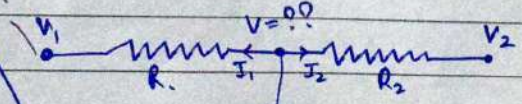 V₁ V=?? V₂
R. I₁ I₂ R₂